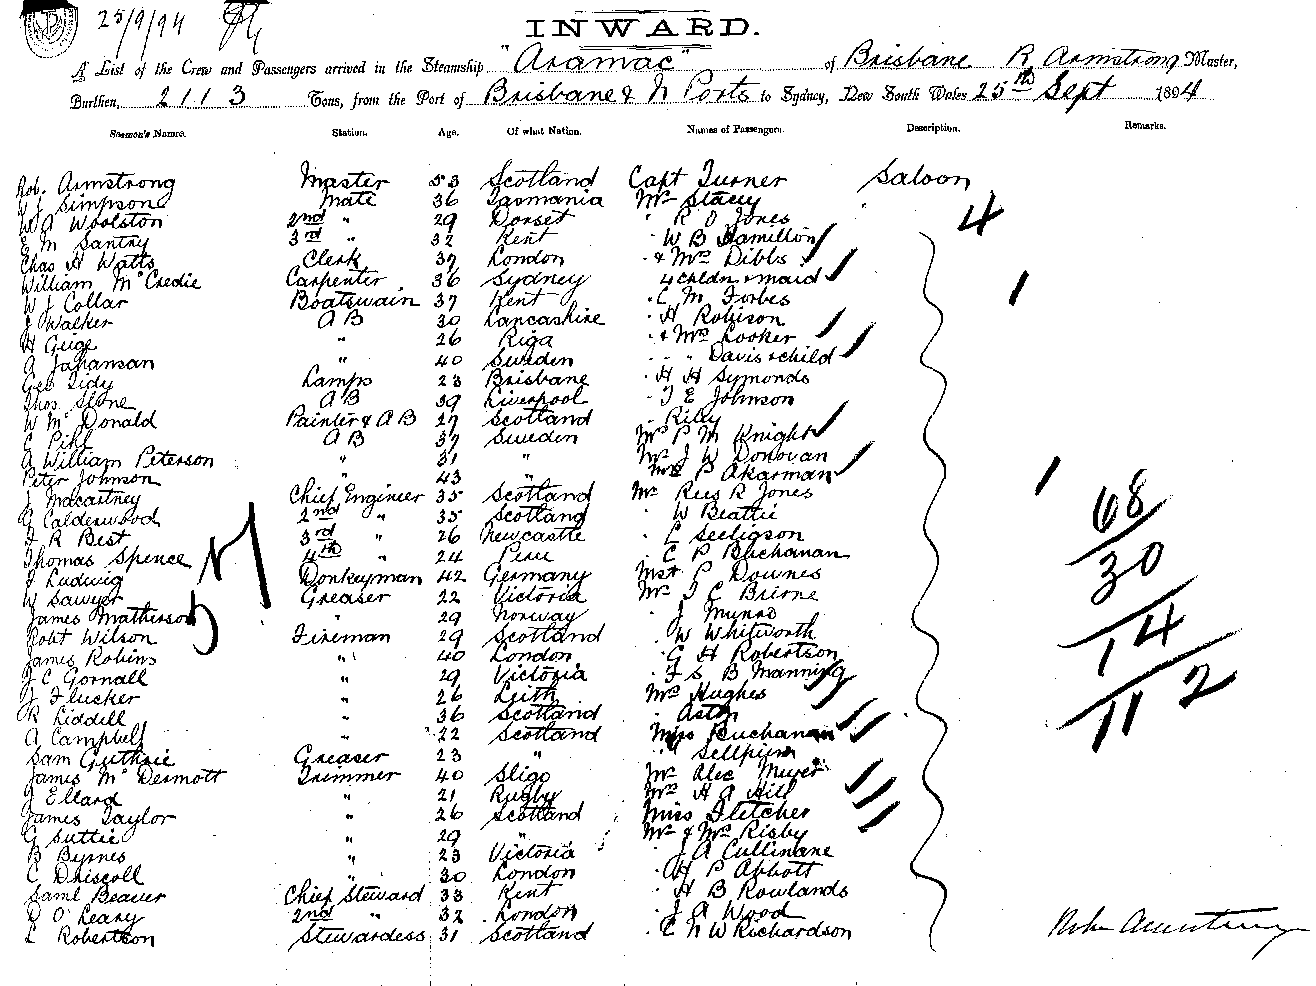 25/9/94
INWARD.
A List of the Crew and Passengers arrived in the Steamship "Aramac" of Brisbane R Armstrong Master,
Burthen, 2113 Tons, from the Port of Brisbane & N Ports to Sydney, New South Wales 25th Sept 1894
Seamen's Names. Station. Age. Of what Nation. Names of Passengers. Description. Remarks.
Rob. Armstrong Master 53 Scotland Capt Turner Saloon
W J Simpson Mate 36 Tasmania Mr Stacey
W A Woolston 2nd " 29 Dorset " R O Jones 4
E M Santry 3rd " 32 Kent " W B Hamilton
Chas H Watts Clerk 37 London " & Mrs Dibbs
William McCredie Carpenter 36 Sydney 4 chldn & maid
W J Collar Boatswain 37 Kent " C M Forbes
J Walker A B 30 Lancashire " H Robison
H Geige " 26 Riga " & Mrs Looker
A Johanson " 40 Sweden " " Davis & child
Geo Tidy Lamps 23 Brisbane " H H Symonds
Thos. Slone A B 39 Liverpool " T E Johnson
W McDonald Painter & A B 27 Scotland " Riley
C Pihl A B 37 Sweden Mrs P M Knight
A William Peterson " 31 " Mr J W Donovan
Peter Johnson " 43 " Mrs P Akarman
J Macartney Chief Engineer 35 Scotland Mr Rees R Jones
G Calderwood 2nd " 35 Scotland " W Beattie
J R Best 3rd " 26 Newcastle " L Seeligson
Thomas Spence 4th " 24 Peru " C P Buchanan
J Ludwig Donkeyman 42 Germany Mst P Downes
W Sawyer Greaser 22 Victoria Mr J C Brirne
James Mathieson " 29 Norway " J Munro
Robt Wilson Fireman 29 Scotland " W Whitworth
James Robins " 40 London " G H Robertson
J C Gornall " 29 Victoria " F S B Manning
J Flucker " 26 Leith Mrs Hughes
R Liddell " 36 Scotland " Aston
A Campbell " 22 Scotland Miss Buchanan
Sam Guthrie Greaser 23 " " Sellheim
James McDermott Trimmer 40 Sligo Mr Alec Meyer
J Ellard " 21 Rugby Mrs H A Hill
James Taylor " 26 Scotland Miss Fletcher
G Suttie " 29 " Mr & Mrs Risby
B Byrnes " 23 Victoria " J A Cullinane
C Driscoll " 30 London " H P Abbott
Saml Beaver Chief Steward 33 Kent " H B Rowlands
D O'Leary 2nd " 32 London " J A Wood
L Robertson Stewardess 31 Scotland " C N W Richardson
68
30
14
112